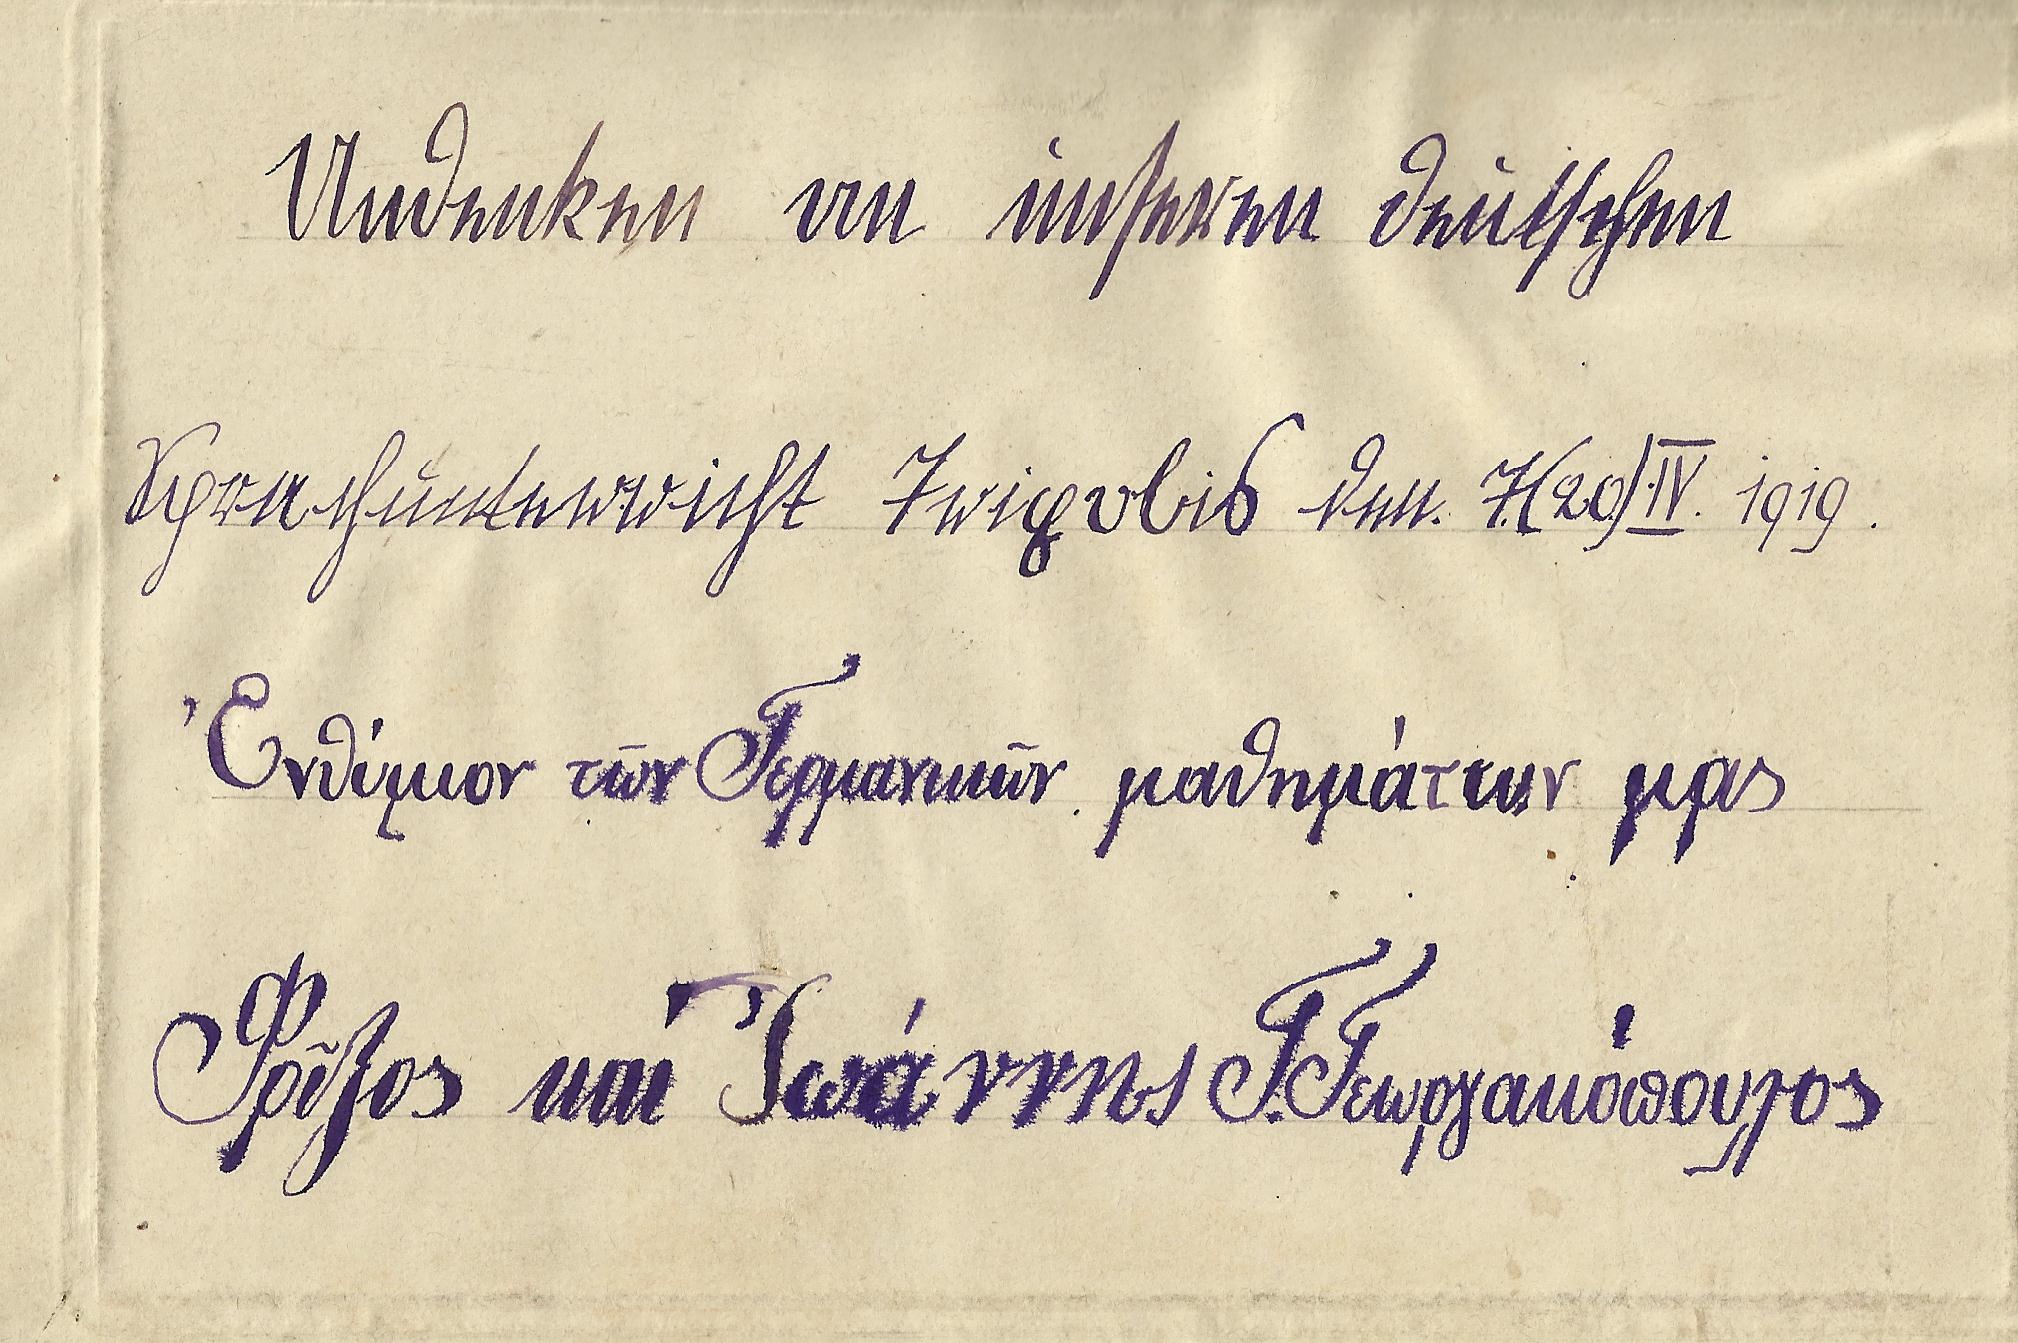 Andenken an unseren deutschen
Sprachunterricht Tripolis den. 7.(20) IV. 1919.
Ἐνθύμιον τῶν Γερμανικῶν μαθημάτων μας
Φρῖξος και Ἰωάννης Γ. Γεωργακόπουλος